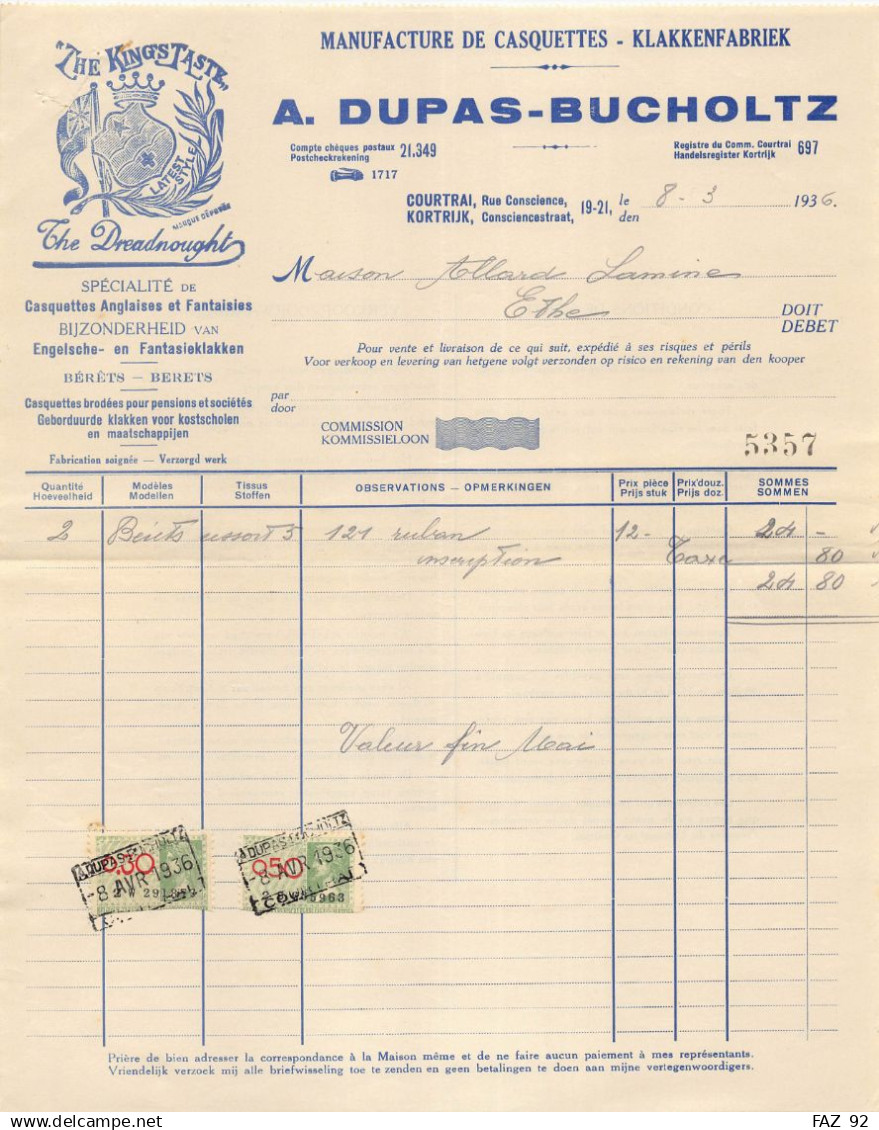 "THE KING'S TASTE"
LATEST STYLE
MARQUE DÉPOSÉE
The Dreadnought
SPÉCIALITÉ DE
Casquettes Anglaises et Fantaisies
BIJZONDERHEID VAN
Engelsche- en Fantasieklakken
BÉRÊTS — BERETS
Casquettes brodées pour pensions et sociétés
Geborduurde klakken voor kostscholen
en maatschappijen
Fabrication soignée — Verzorgd werk
MANUFACTURE DE CASQUETTES - KLAKKENFABRIEK
A. DUPAS-BUCHOLTZ
Compte chèques postaux
Postcheckrekening 21.349
1717
Registre du Comm. Courtrai
Handelsregister Kortrijk 697
COURTRAI, Rue Conscience,
KORTRIJK, Consciencestraat, 19-21,
le
den 8 - 3 1936.
Maison Allard Lamine
Ethe
DOIT
DEBET
Pour vente et livraison de ce qui suit, expédié à ses risques et périls
Voor verkoop en levering van hetgene volgt verzonden op risico en rekening van den kooper
par
door
COMMISSION
KOMMISSIELOON
5357
Quantité Modèles Tissus OBSERVATIONS — OPMERKINGEN Prix pièce Prix douz. SOMMES
Hoeveelheid Modellen Stoffen Prijs stuk Prijs doz. SOMMEN
2 Bérets assort 5 121 ruban 12 - 24 -
inscription Taxe 80
24 80
Valeur fin Mai
A.DUPAS-BUCHOLTZ
0.30
-8 AVR 1936
A.DUPAS-BUCHOLTZ
0.50
-8 AVR 1936
5963
COURTRAI
Prière de bien adresser la correspondance à la Maison même et de ne faire aucun paiement à mes représentants.
Vriendelijk verzoek mij alle briefwisseling toe te zenden en geen betalingen te doen aan mijne vertegenwoordigers.
FAZ 92